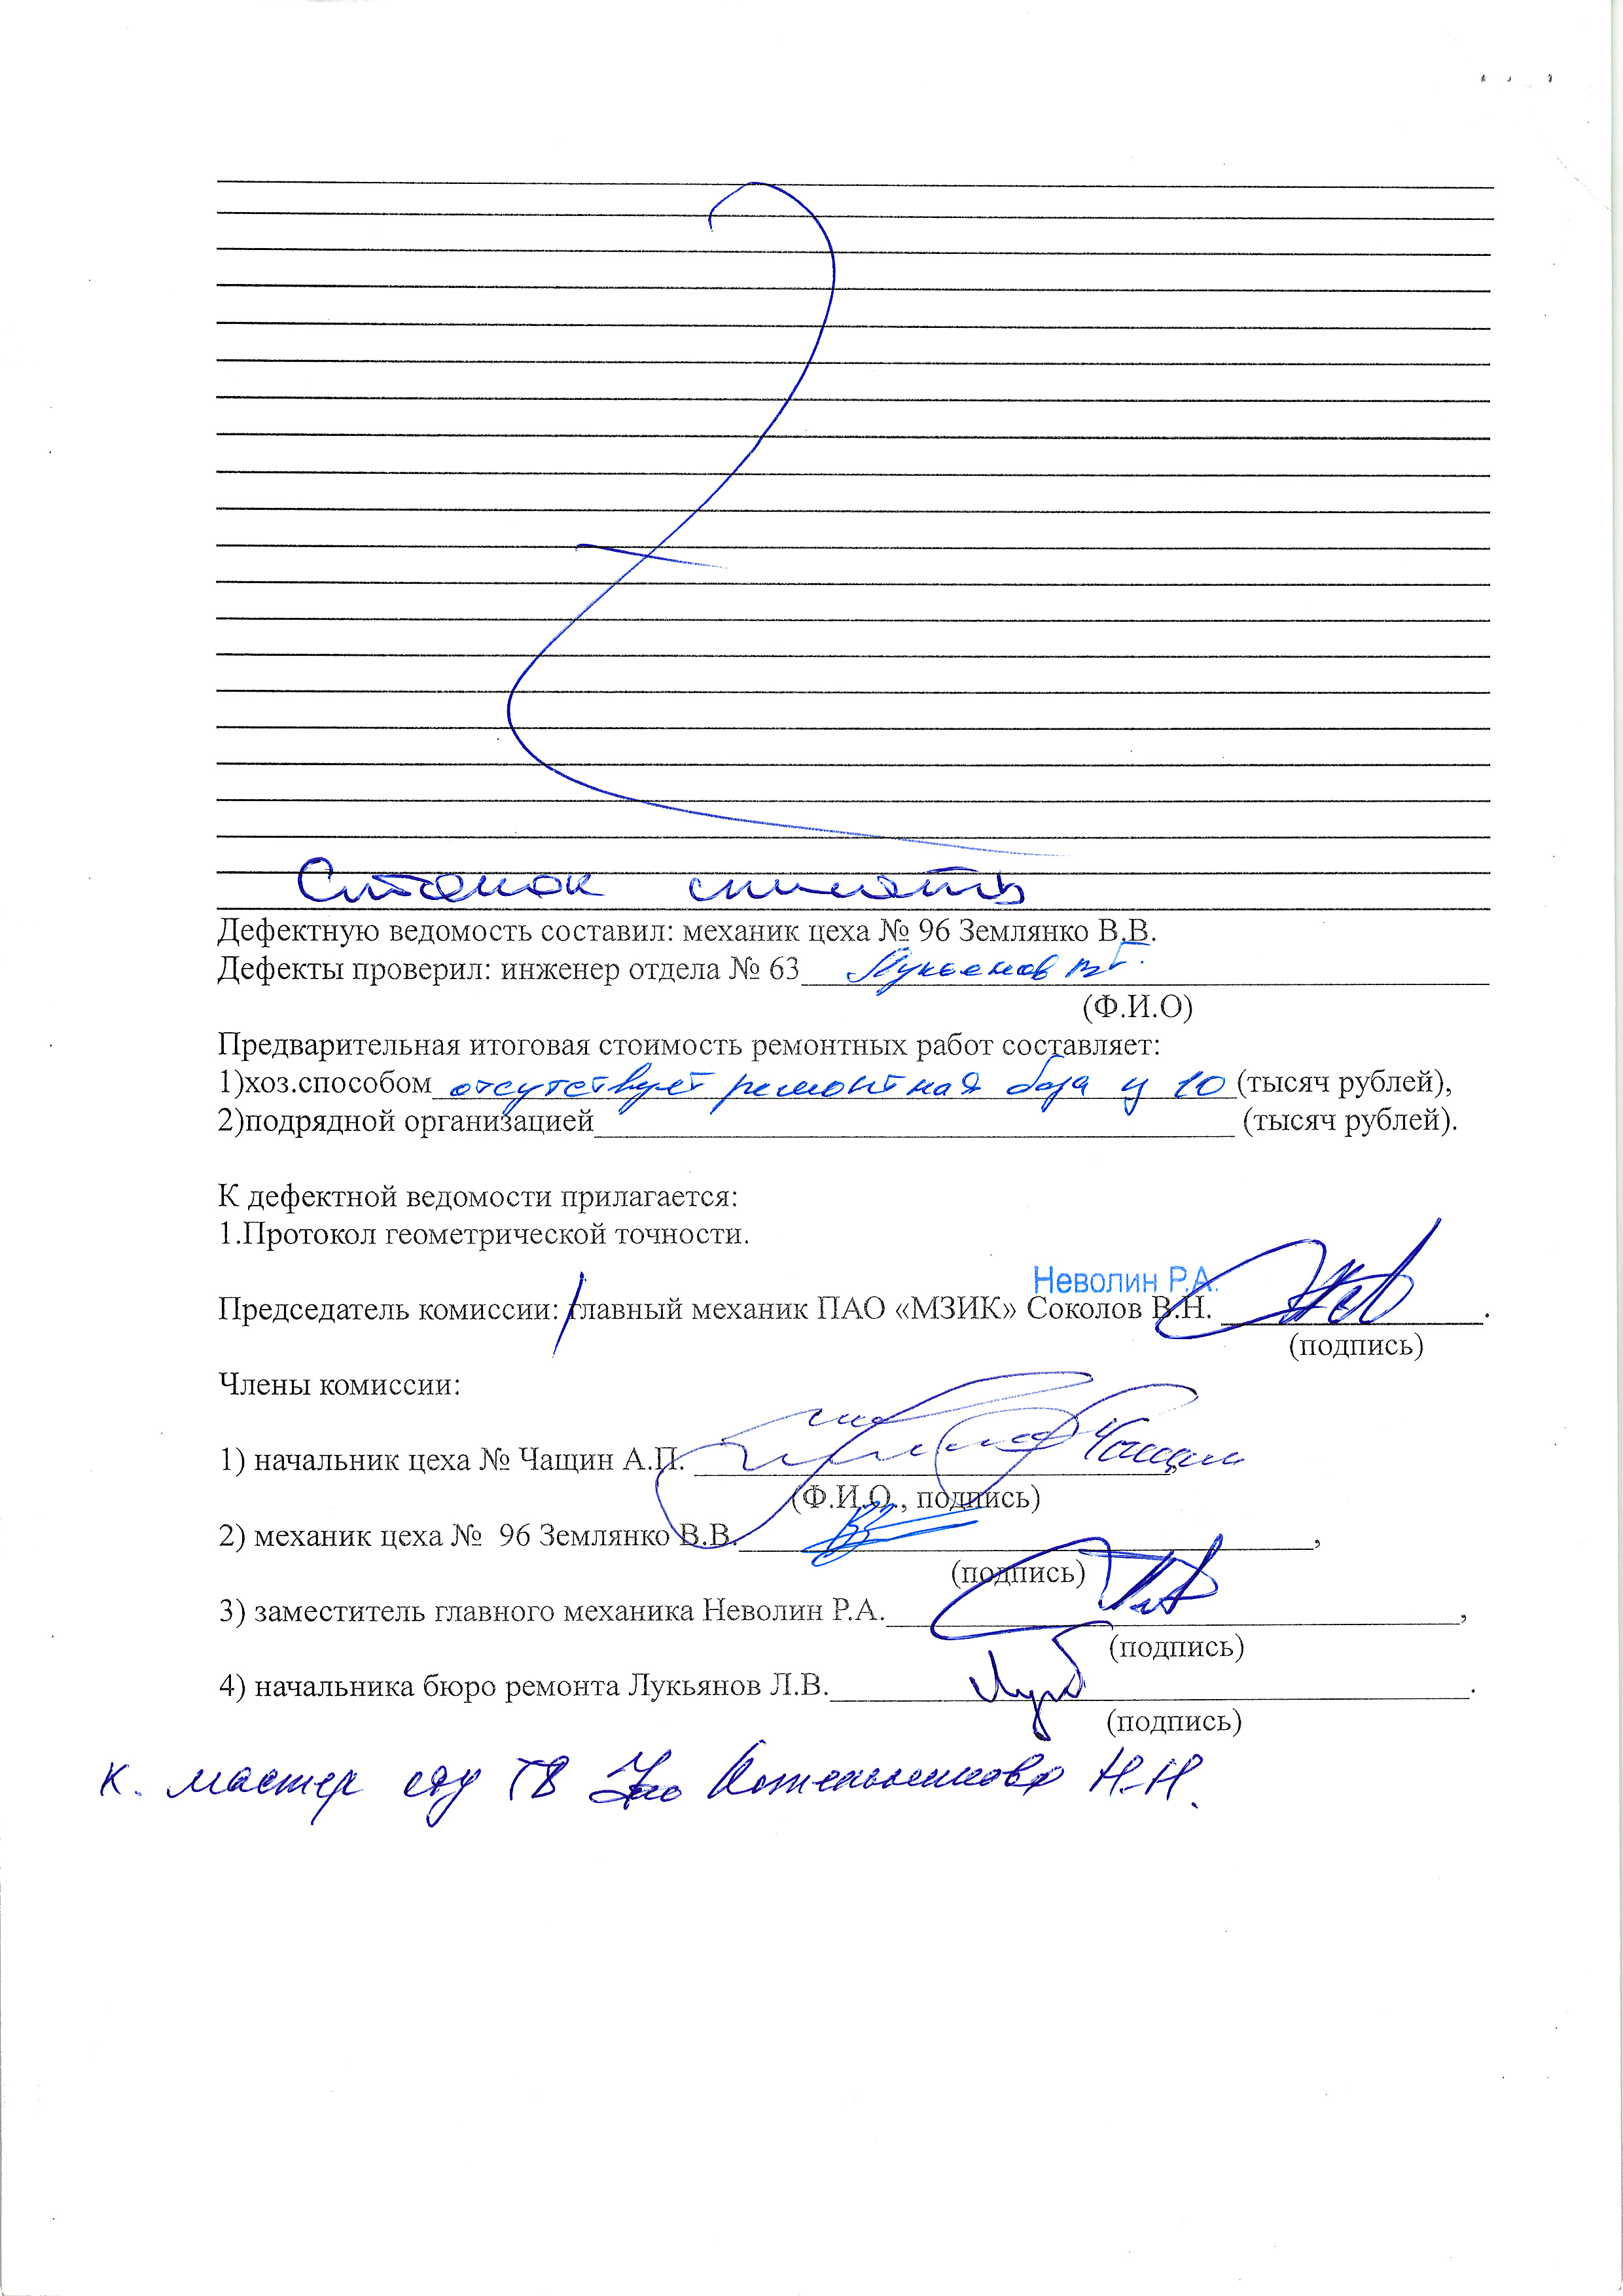 Станок списать
Дефектную ведомость составил: механик цеха № 96 Землянко В.В.
Дефекты проверил: инженер отдела № 63 Лукьянов
(Ф.И.О)
Предварительная итоговая стоимость ремонтных работ составляет:
1)хоз.способом отсутствует ремонтная база ц 10 (тысяч рублей),
2)подрядной организацией (тысяч рублей).
К дефектной ведомости прилагается:
1.Протокол геометрической точности.
Неволин Р.А.
Председатель комиссии: главный механик ПАО «МЗИК» Соколов В.Н. .
(подпись)
Члены комиссии:
1) начальник цеха № Чащин А.П. Чащин
(Ф.И.О., подпись)
2) механик цеха № 96 Землянко В.В. ,
(подпись)
3) заместитель главного механика Неволин Р.А. ,
(подпись)
4) начальника бюро ремонта Лукьянов Л.В. .
(подпись)
к. мастер Н.Н.